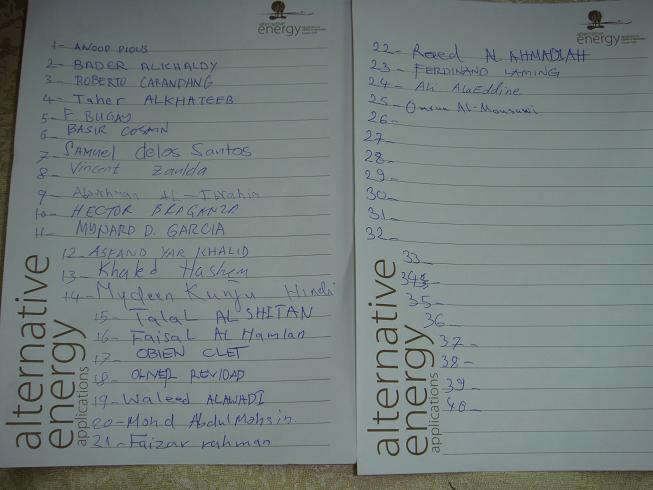 alternative
energy
1- ANOOP PIOUS
2- BADER ALKHALDY
3- ROBERTO CARANDANG
4- Taher ALKHATEEB
5- F. BUGAY
6- BASIR COSAIN
7- SAMUEL delos Santos
8- Vincent Zaulda
9- AL-Ibrahim
10- HECTOR BRAGANZA
11- MYNARD D. GARCIA
12- ASFAND YAR KHALID
13- Khaled Hashem
14- Mydeen Kunju Hindi
15- Talal AL SHITAN
16- Faisal AL Hamlan
17- OBIEN CLET
18- OLIVER REVIDAD
19- Waleed ALAWADI
20- Mohd Abdul Mohsin.
21- Faizar rahman
alternative
energy
applications
alternative
energy
22- Raed AL AHMADIAH
23- FERDINAND LAMING
24- Ali AlaEddine
25- Omran Al-Mousawi
26-
27-
28-
29-
30-
31-
32-
33-
34-
35-
36-
37-
38-
39-
40-
alternative
energy
applications